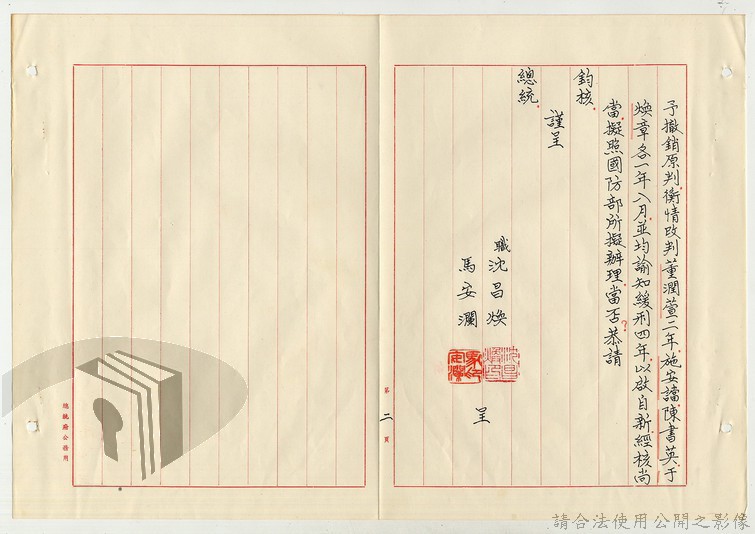 予撤銷原判衡情改判董潤萱二年施安謚陳書英于
煥章各一年八月並均諭知緩刑四年以啟自新經核尚
當擬照國防部所擬辦理當否?恭請
鈞核
謹呈
總統
職沈昌煥
馬安瀾
呈
第二頁
總統府公務用
請合法使用公開之影像